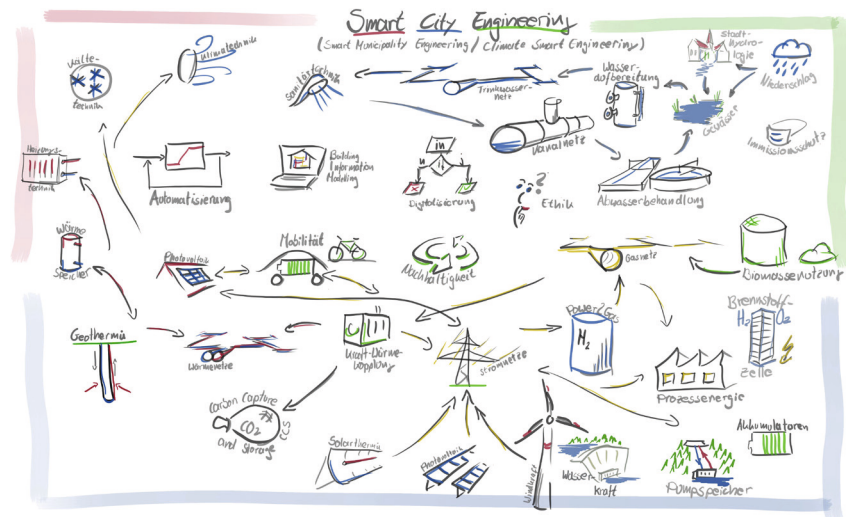 Smart City Engineering
(Smart Municipality Engineering / Climate Smart Engineering)
Kälte-
technik
Klimatechnik
Sanitärtechnik
Trinkwasser-
netz
Wasser-
aufbereitung
Stadt-
hydro-
logie
Niederschlag
Gewässer
Immissionsschutz
Heizungs-
technik
Automatisierung
Building
Information
Modeling
in
n
j
Digitalisierung
Ethik
Kanalnetz
Abwasserbehandlung
Wärme
Speicher
Photovoltaik
Mobilität
Nachhaltigkeit
Gasnetz
Biomassenutzung
Geothermie
Wärmenetze
Kraft-Wärme-
Kopplung
Stromnetze
Power2Gas
H2
Brennstoff-
H2 O2
zelle
Prozessenergie
Carbon Capture
and Storage
CCS
CO2
Solarthermie
Photovoltaik
Windkraft
Wasser
Kraft
Pumpspeicher
Akkumulatoren